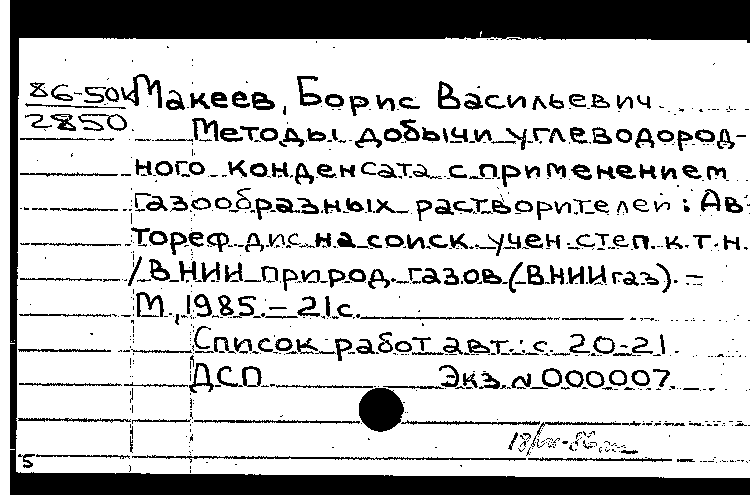 86-50к Макеев, Борис Васильевич
2850 Методы добычи углеводород-
ного конденсата с применением
газообразных растворителей: Ав-
тореф. дис на соиск учен. степ. к.т.н.
/ВНИИ природ. газов (ВНИИгаз). –
М., 1985. – 21с.
Список работ авт.: с. 20-21.
ДСП Экз. N 000007.
5